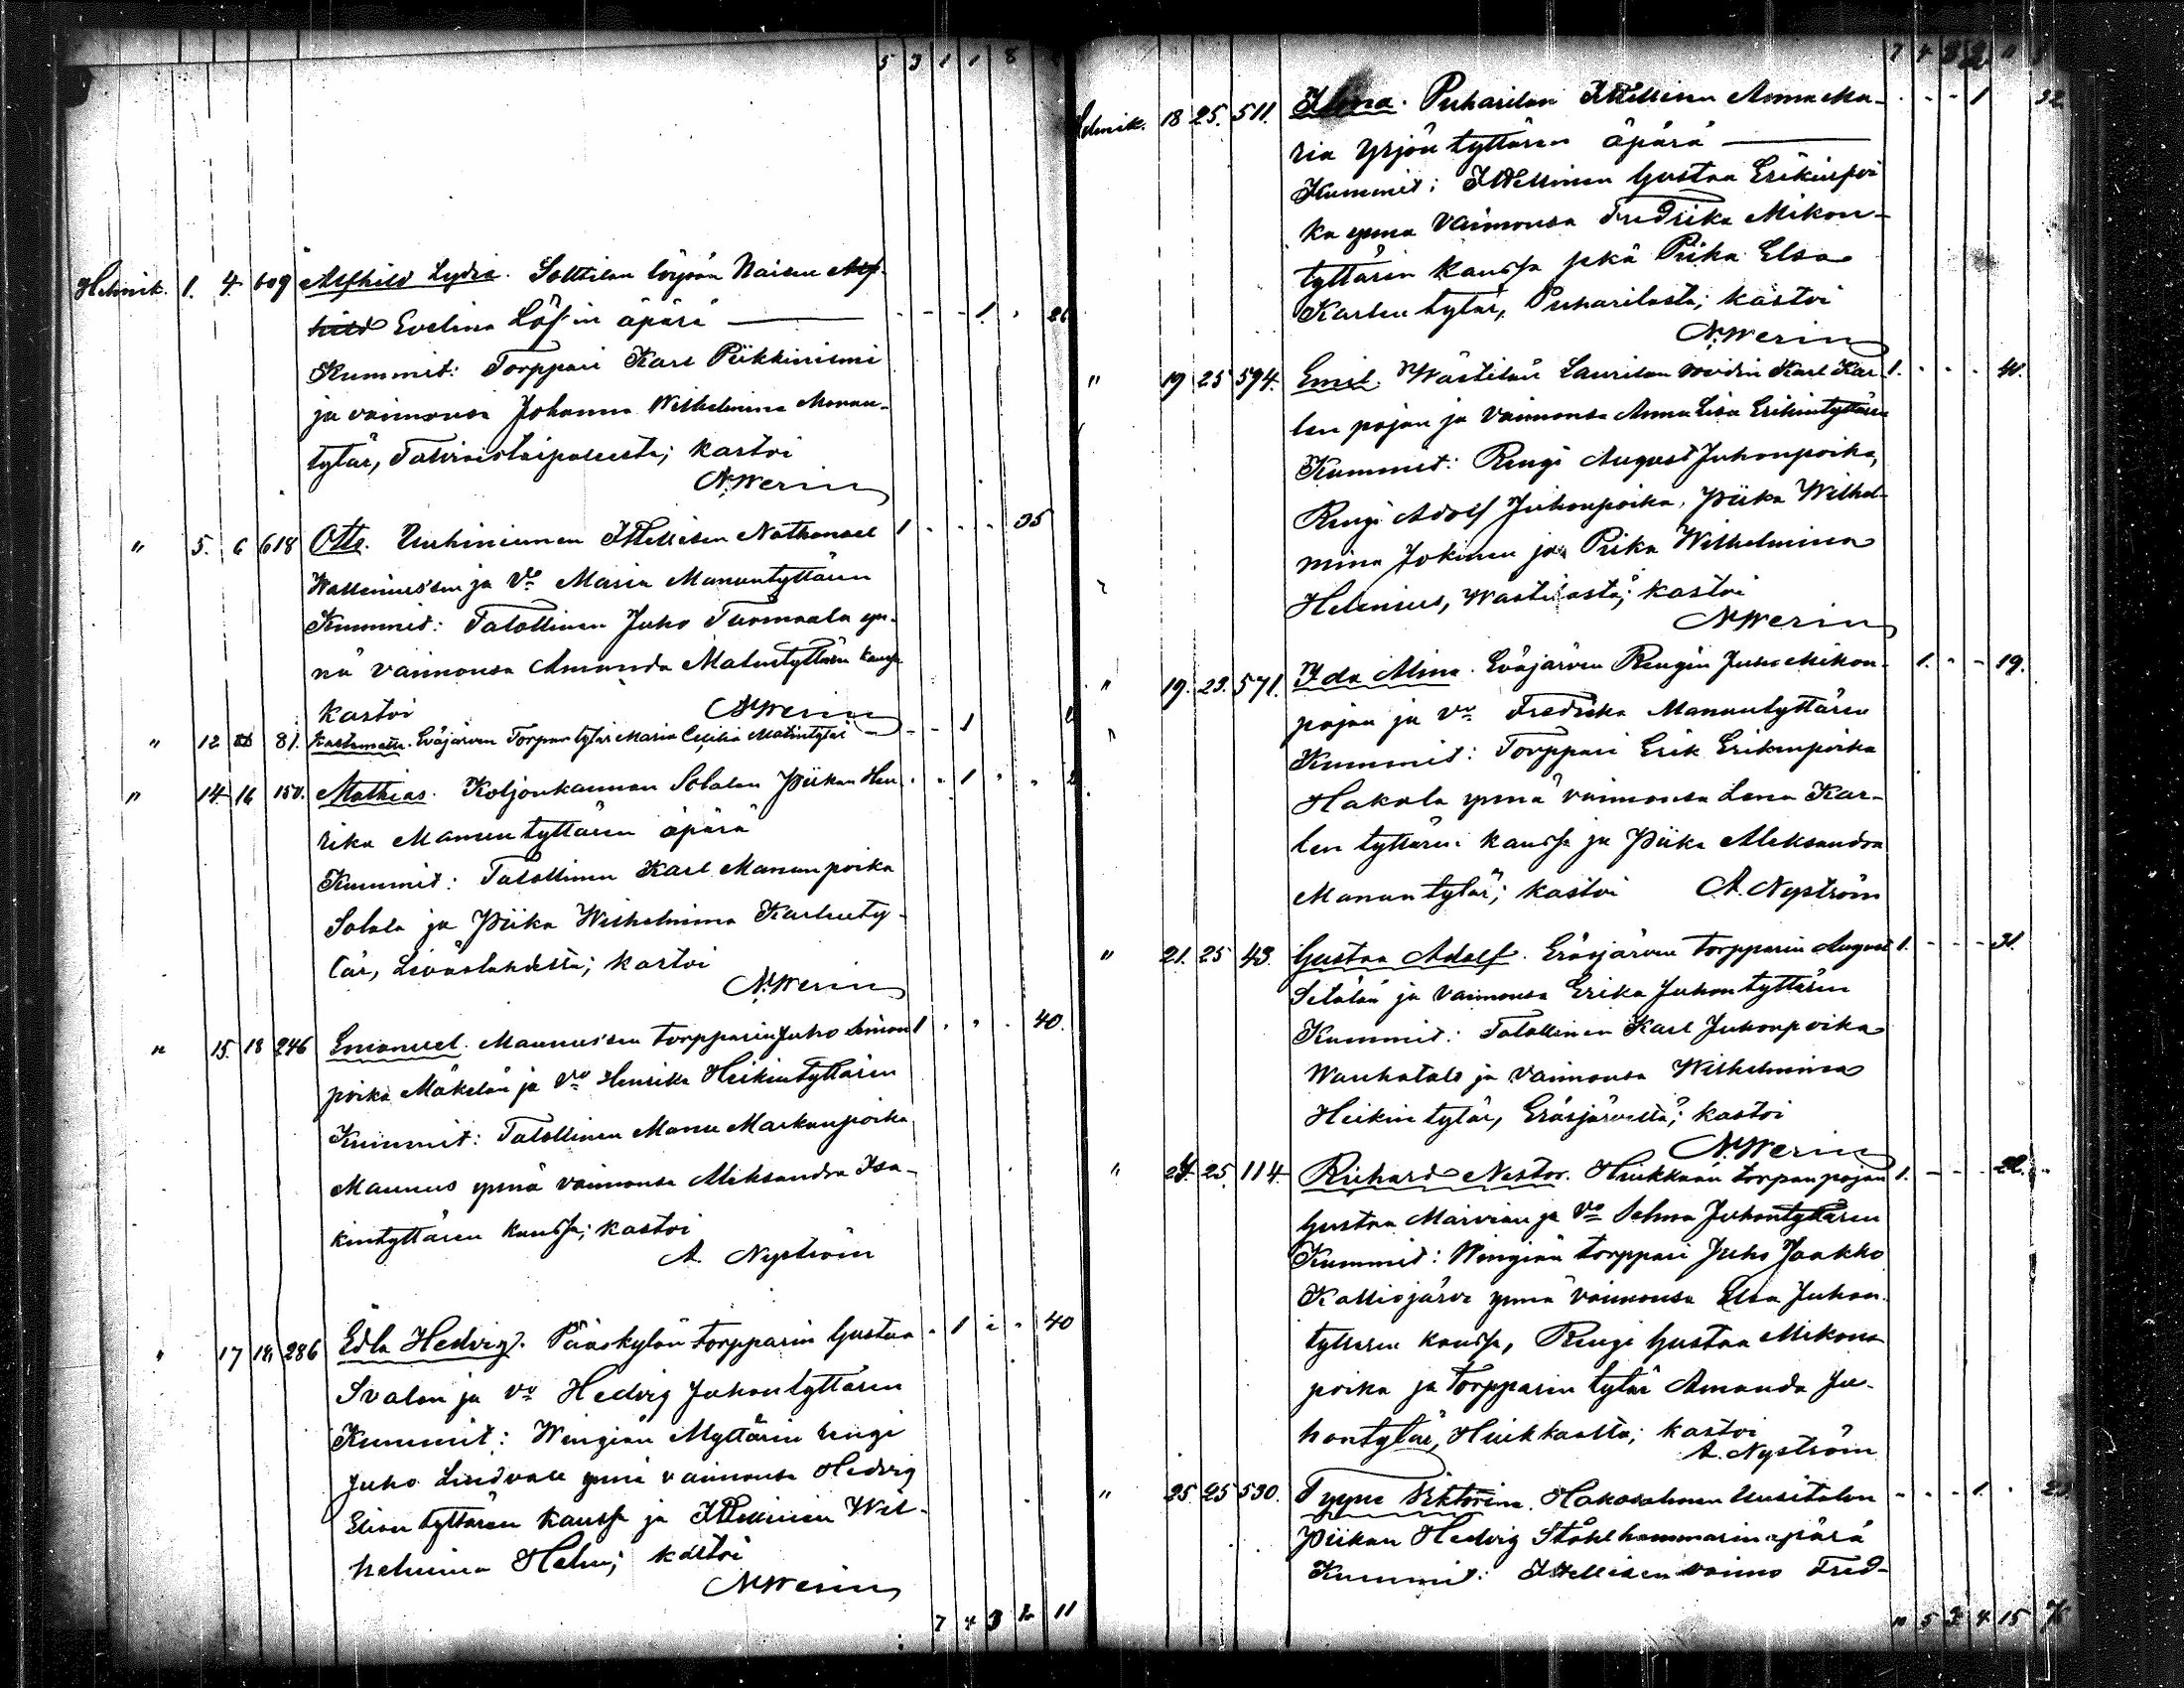 5 3 1 1 8
Helmik. 1. 4. 609 Alfhild Lydia. Solttilan löysän Naisen Alf-
hild Evelina Löf'in äpärä — - - - 1. 26
Kummit: Torppari Karl Piikkiniemi
ja vaimonsa Johanna Wilhelmina Manan-
tytär, kastoi
N. Werin
" 5. 6 618 Otto. Uuhiniemen Itsellisen Nathanael 1 - - - 35
Wallenius'sen ja Vo Maria Manuntyttären
Kummit: Talollinen Juho Tuomaala yn-
nä vaimonsa Amanda Matintyttären kanssa
kastoi N. Werin
" 12 81. Kastamatta. Eväjärven Torpan tytär Maria Cecilia Matintytär - - - 1
" 14 16 150. Mathias. Koljonkannan Solalan Piikan Hen- - - 1
rika Manuntyttären äpärä
Kummit: Talollinen Karl Manunpoika
Solala ja Piika Wilhelmina Karlenty-
tär, Liväslahdesta; kastoi
N. Werin
" 15. 18 246 Emanuel. Maunus'sen torpparin Juho Simon 1 - - - 40.
poika Mäkelän ja Vo Henrika Heikintyttären
Kummit: Talollinen Manu Markunpoika
Maunus ynnä vaimonsa Aleksandra Isa-
kintyttären kanssa; kastoi
A. Nyström
" 17 18 286 Edla Hedvig. Pääskylän torpparin Gustaa - 1 - - 40
Svalan ja Vo Hedvig Juhontyttären
Kummit: Wengiän Myttärin rengi
Juho Lindvall ynnä vaimonsa Hedvig
Elian tyttären kanssa ja Itsellinen Wil-
helmina Helin; kastoi
N. Werin
7 4 3 2 11
7 4 3 2 11
Helmik. 18 25. 511. Ilma. Puharilan Itsellisen Anna Ma- - - - 1 32
ria Yrjön tyttären äpärä —
Kummit: Itsellinen Gustaa Erikinpoi
ka ynnä vaimonsa Fredrika Mikon-
tyttären kanssa sekä Piika Elsa
Karlen tytär, Puharilasta; kastoi
N. Werin
" 19 25 594. Emil. Wästilän Laurilan voudin Karl Kar- 1. - - - 40.
len pojan ja vaimonsa Anna Lisa Erikintyttären
Kummit: Rengi August Juhonpoika,
Rengi Adolf Juhonpoika, Piika Wilhel-
mina Jokinen ja Piika Wilhelmina
Helenius, Wästilästä; kastoi
N. Werin
" 19. 23. 571. Ida Alina. Eväjärven Rengin Juho Mikon- 1. - - 19.
pojan ja Vo Fredrika Manuntyttären
Kummit: Torppari Erik Erikinpoika
Hakala ynnä vaimonsa Lena Kar-
len tyttären kanssa ja Piika Aleksandra
Manun tytär; kastoi A. Nyström
" 21. 25 43. Gustaa Adolf. Eräsjärven torpparin August 1. - - - 31.
Setälän ja vaimonsa Erika Juhontyttären
Kummit: Talollinen Karl Juhonpoika
Wanhatalo ja vaimonsa Wilhelmina
Heikin tytär, Eräsjärveltä; kastoi
N. Werin
" 24. 25. 114. Richard Nestor. Hiukkaan torpanpojan 1. - - - 22.
Gustaa ja Vo Selma Juhontyttären
Kummit: Wengiän torppari Juho Jaakko
Kalliojärvi ynnä vaimonsa Elsa Juhon-
tyttären kanssa, Rengi Gustaa Mikon-
poika ja Torpparin tytär Amanda Ju-
hontytär, Hiukkaalta; kastoi
A. Nyström
" 25. 25 530. Tyyne Viktorina. Hakosalmen Uusitalon - - - 1. - 23
Piikan Hedvig Stålhammarin äpärä
Kummit: Itsellisen vaimo Fred-
10 5 3 4 15